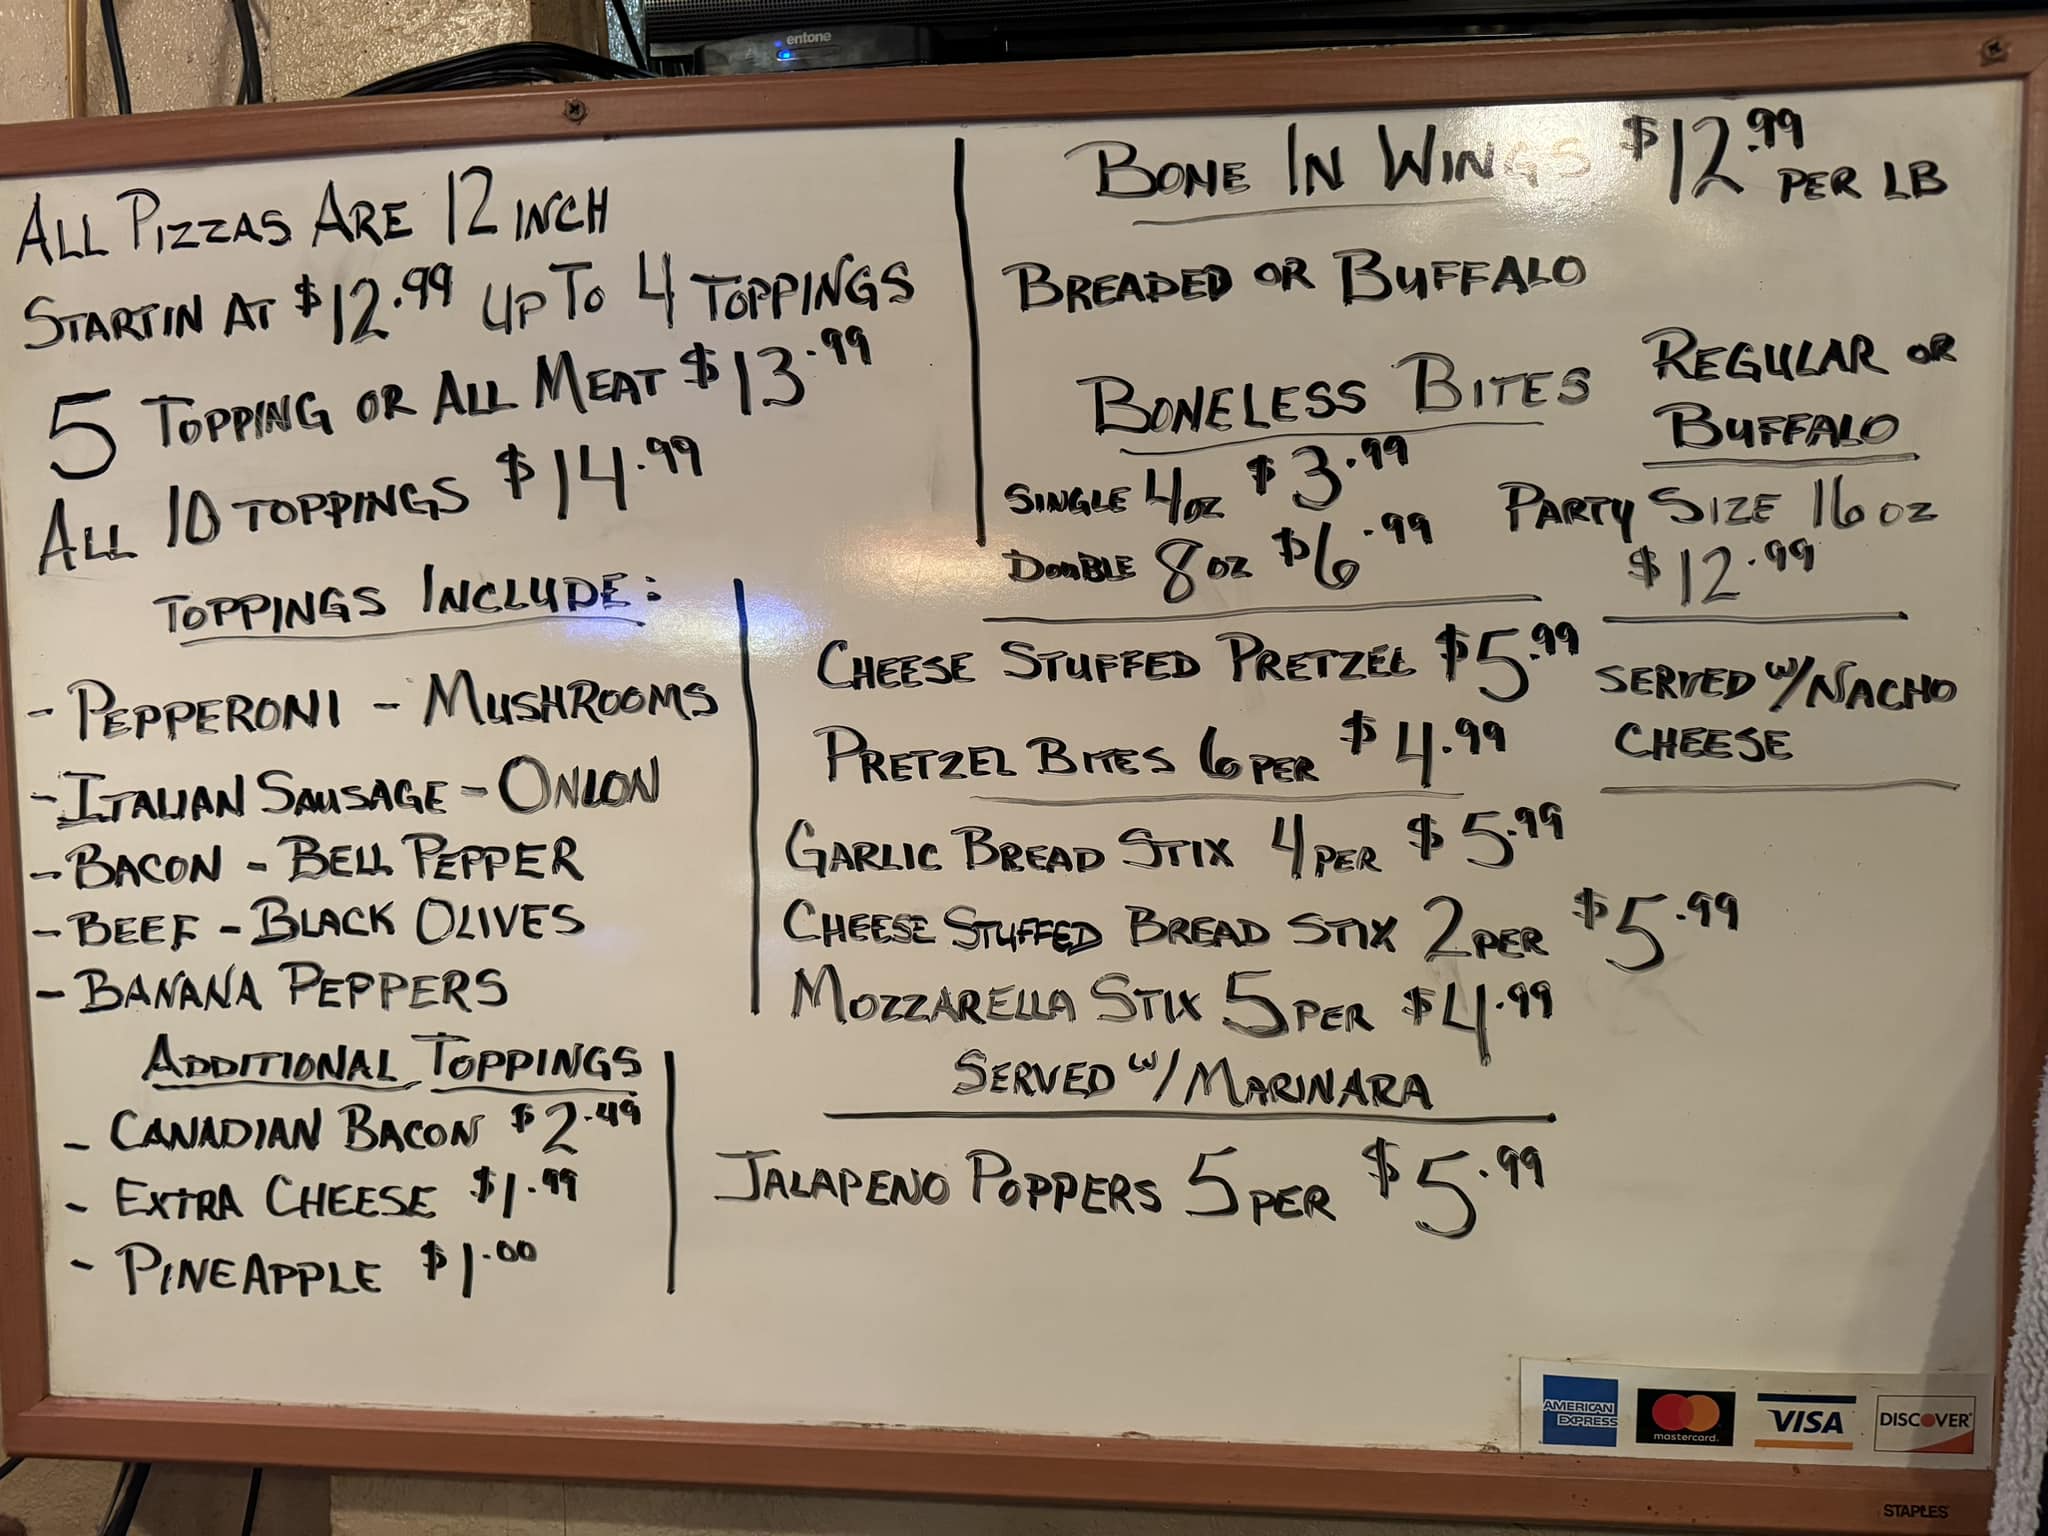 entone
ALL PIZZAS ARE 12 INCH
STARTIN AT $12.99 UP TO 4 TOPPINGS
5 TOPPING OR ALL MEAT $13.99
ALL 10 TOPPINGS $14.99
TOPPINGS INCLUDE:
- PEPPERONI - MUSHROOMS
- ITALIAN SAUSAGE - ONION
- BACON - BELL PEPPER
- BEEF - BLACK OLIVES
- BANANA PEPPERS
ADDITIONAL TOPPINGS
- CANADIAN BACON $2.49
- EXTRA CHEESE $1.99
- PINEAPPLE $1.00
BONE IN WINGS $12.99 PER LB
BREADED OR BUFFALO
BONELESS BITES
REGULAR OR
BUFFALO
SINGLE 4OZ $3.99
DOUBLE 8OZ $6.99
PARTY SIZE 16 OZ
$12.99
CHEESE STUFFED PRETZEL $5.99
PRETZEL BITES 6 PER $4.99
SERVED W/NACHO
CHEESE
GARLIC BREAD STIX 4 PER $5.99
CHEESE STUFFED BREAD STIX 2 PER $5.99
MOZZARELLA STIX 5 PER $4.99
SERVED W/MARINARA
JALAPENO POPPERS 5 PER $5.99
AMERICAN
EXPRESS
mastercard.
VISA
DISCOVER
STAPLES